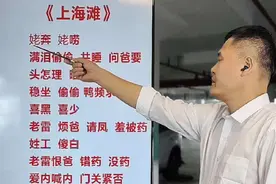 《上海滩》
姥奔 姥唠
满泪偷偷 共睡 问爸要
头怎理
稳坐 偷偷 鸭频
喜黑 喜少
老雷 烦爸 请凤 羞被药
姓工 傻白
老雷恨爸 错药 没药
爱内喊内 门关紧否